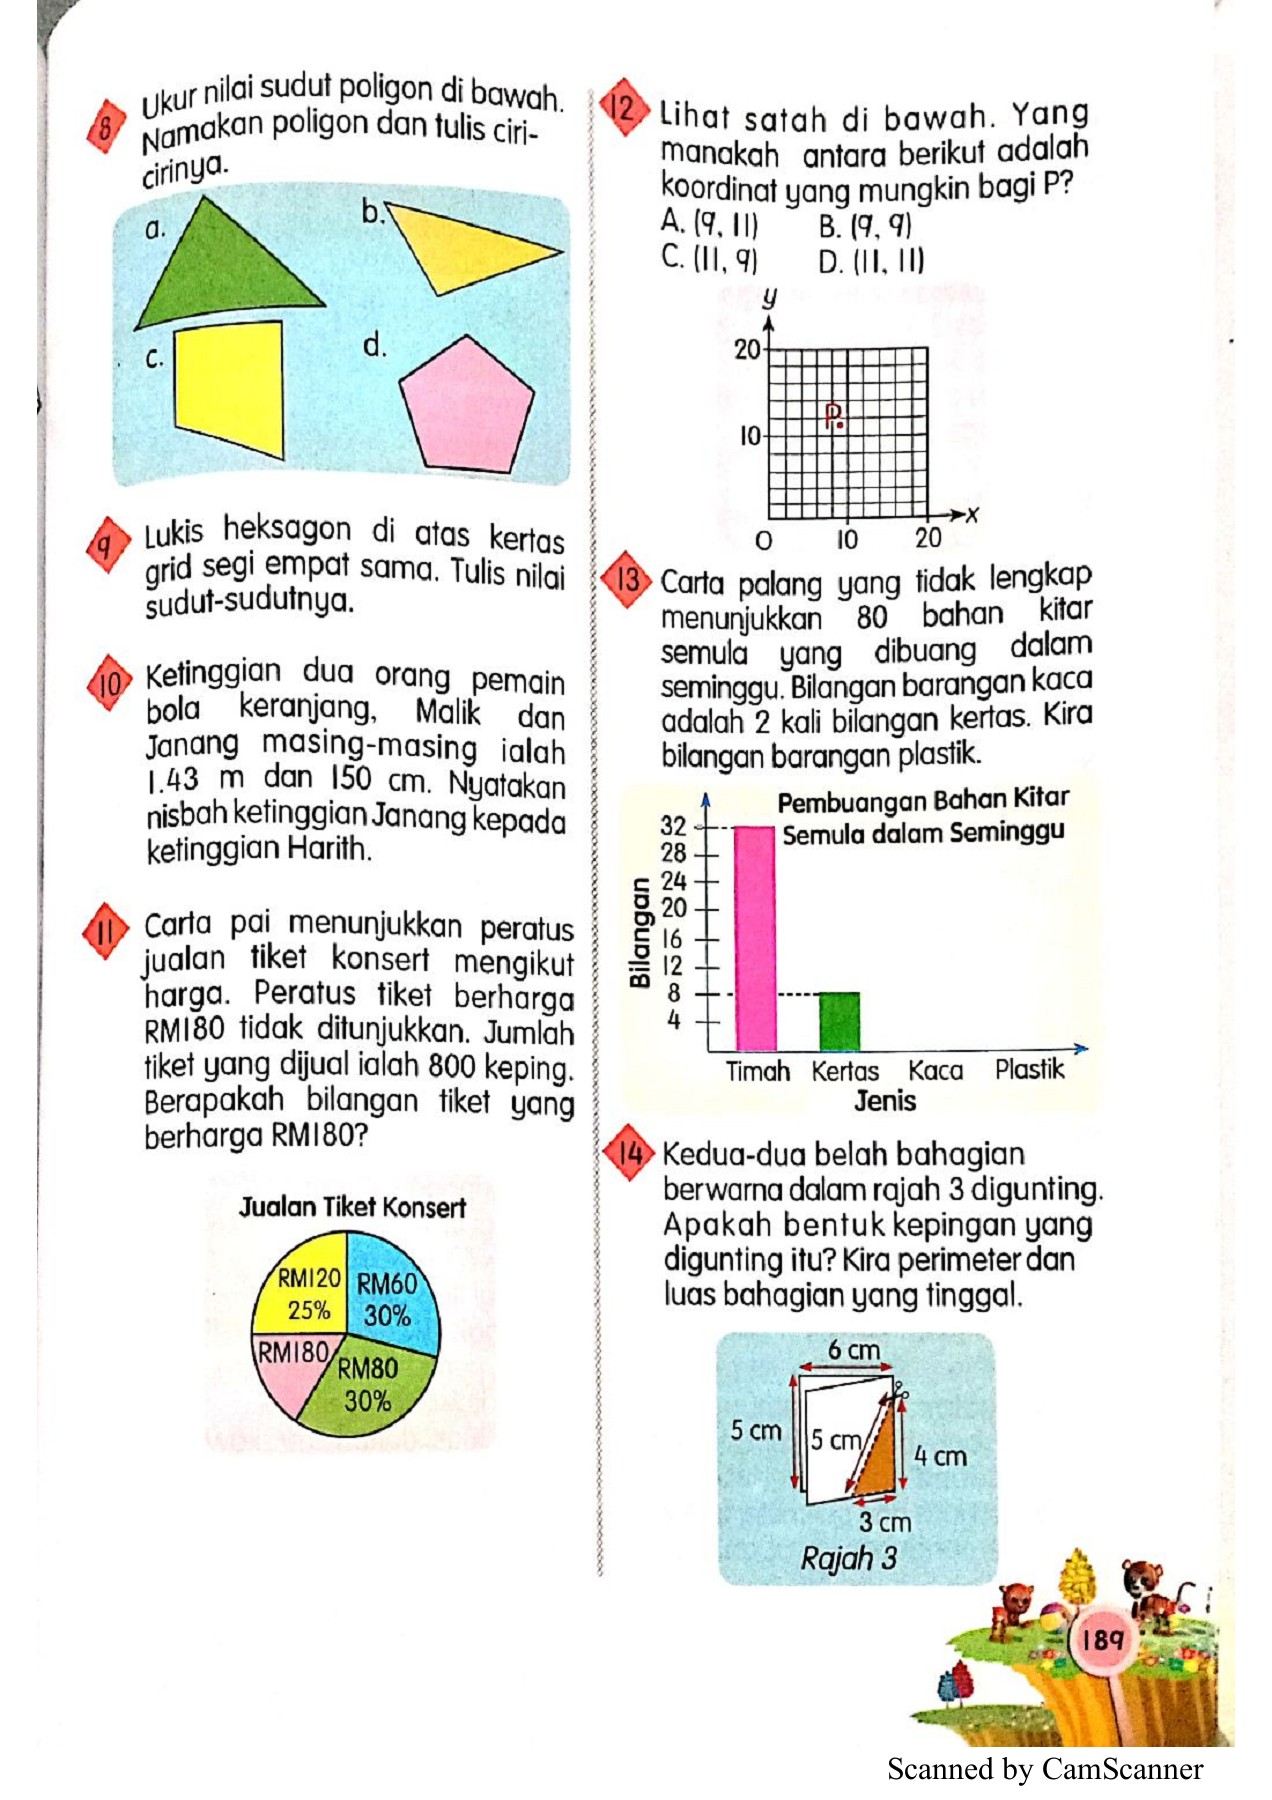 8 Ukur nilai sudut poligon di bawah.
Namakan poligon dan tulis ciri-
cirinya.
a.
b.
c.
d.
9 Lukis heksagon di atas kertas
grid segi empat sama. Tulis nilai
sudut-sudutnya.
10 Ketinggian dua orang pemain
bola keranjang, Malik dan
Janang masing-masing ialah
1.43 m dan 150 cm. Nyatakan
nisbah ketinggian Janang kepada
ketinggian Harith.
11 Carta pai menunjukkan peratus
jualan tiket konsert mengikut
harga. Peratus tiket berharga
RM180 tidak ditunjukkan. Jumlah
tiket yang dijual ialah 800 keping.
Berapakah bilangan tiket yang
berharga RM180?
Jualan Tiket Konsert
RM120
25%
RM60
30%
RM180
RM80
30%
12 Lihat satah di bawah. Yang
manakah antara berikut adalah
koordinat yang mungkin bagi P?
A. (9, 11) B. (9, 9)
C. (11, 9) D. (11, 11)
y
20
P.
10
x
O 10 20
13 Carta palang yang tidak lengkap
menunjukkan 80 bahan kitar
semula yang dibuang dalam
seminggu. Bilangan barangan kaca
adalah 2 kali bilangan kertas. Kira
bilangan barangan plastik.
Pembuangan Bahan Kitar
Semula dalam Seminggu
Bilangan
32
28
24
20
16
12
8
4
Timah Kertas Kaca Plastik
Jenis
14 Kedua-dua belah bahagian
berwarna dalam rajah 3 digunting.
Apakah bentuk kepingan yang
digunting itu? Kira perimeter dan
luas bahagian yang tinggal.
6 cm
5 cm
5 cm
4 cm
3 cm
Rajah 3
189
Scanned by CamScanner